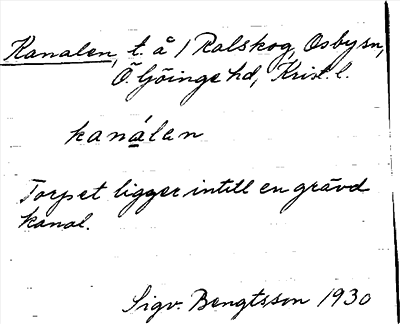 Kanalen, t. å / Ralskog, Osby sn,
Ö. Göinge hd, Krist. l.
kanálen
Torpet ligger intill en grävd
kanal.
Sigv. Bengtsson 1930